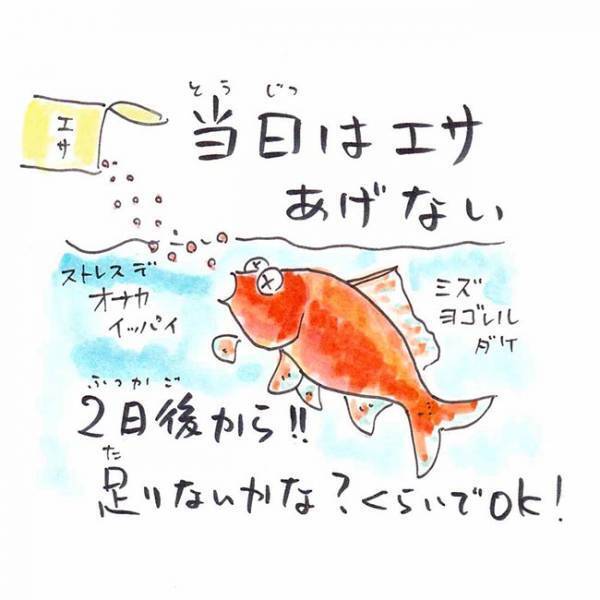 エサ
とうじつ
当日はエサ
あげない
ストレスデ
オナカ
イッパイ
ミズ
ヨゴレル
ダケ
ふつかご
2日後から!!
た
足りないかな?くらいでOK!